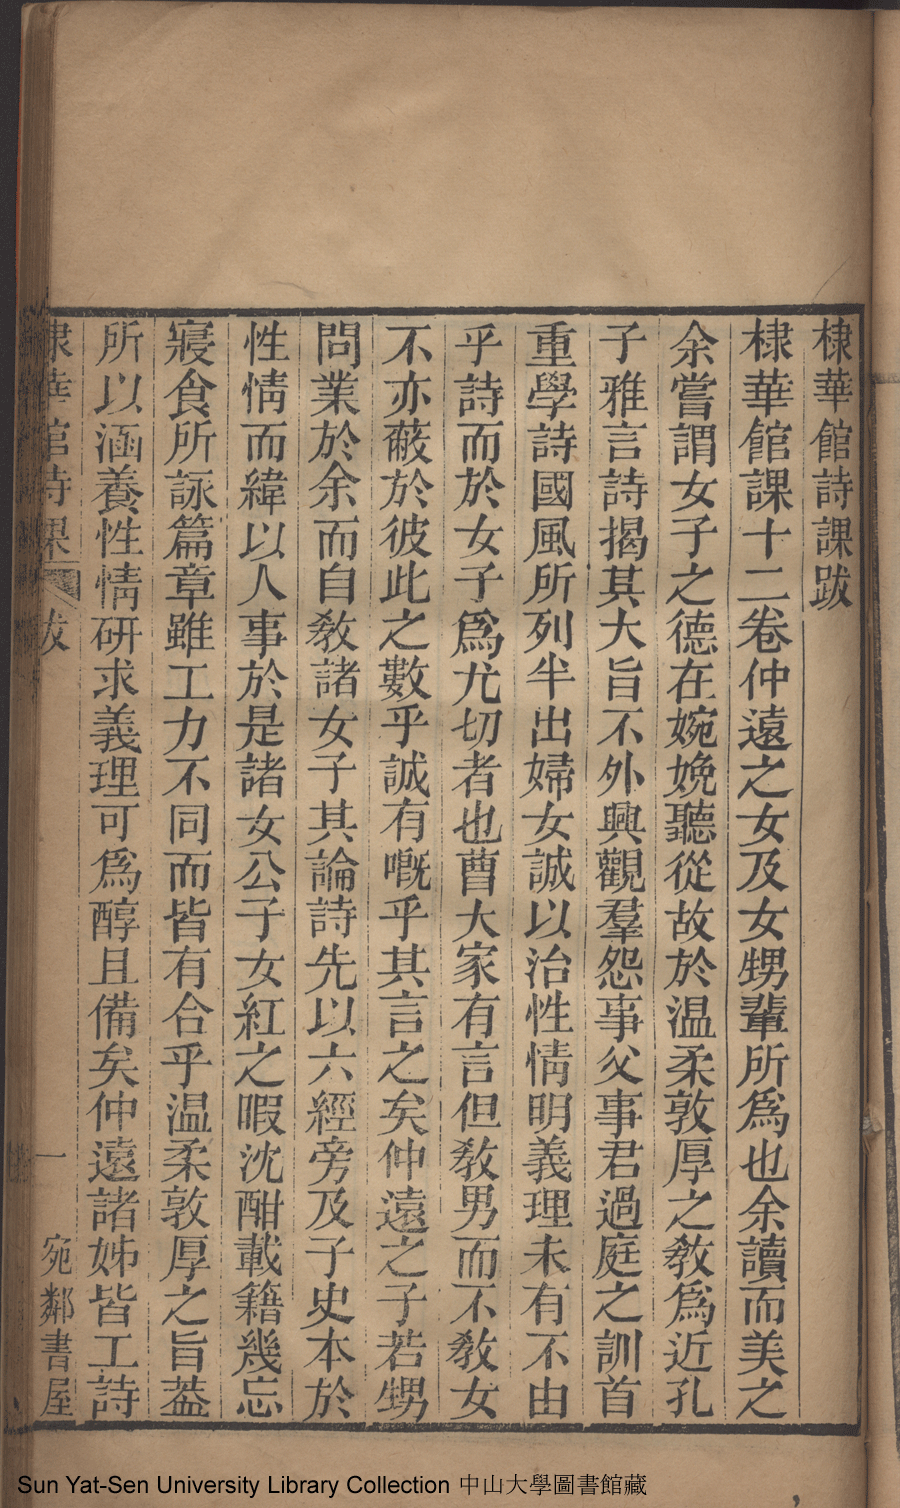 棣華館詩課跋
棣華館課十二卷仲遠之女及女甥輩所爲也余讀而美之
余嘗謂女子之德在婉娩聽從故於温柔敦厚之敎爲近孔
子雅言詩揭其大旨不外興觀羣怨事父事君過庭之訓首
重學詩國風所列半出婦女誠以治性情明義理未有不由
乎詩而於女子爲尤切者也曹大家有言但敎男而不敎女
不亦蔽於彼此之數乎誠有嘅乎其言之矣仲遠之子若甥
問業於余而自敎諸女子其論詩先以六經旁及子史本於
性情而緯以人事於是諸女公子女紅之暇沈酣載籍幾忘
寢食所詠篇章雖工力不同而皆有合乎温柔敦厚之旨葢
所以涵養性情硏求義理可爲醇且備矣仲遠諸姊皆工詩
棣華館詩課 跋 一 宛鄰書屋
Sun Yat-Sen University Library Collection 中山大學圖書館藏